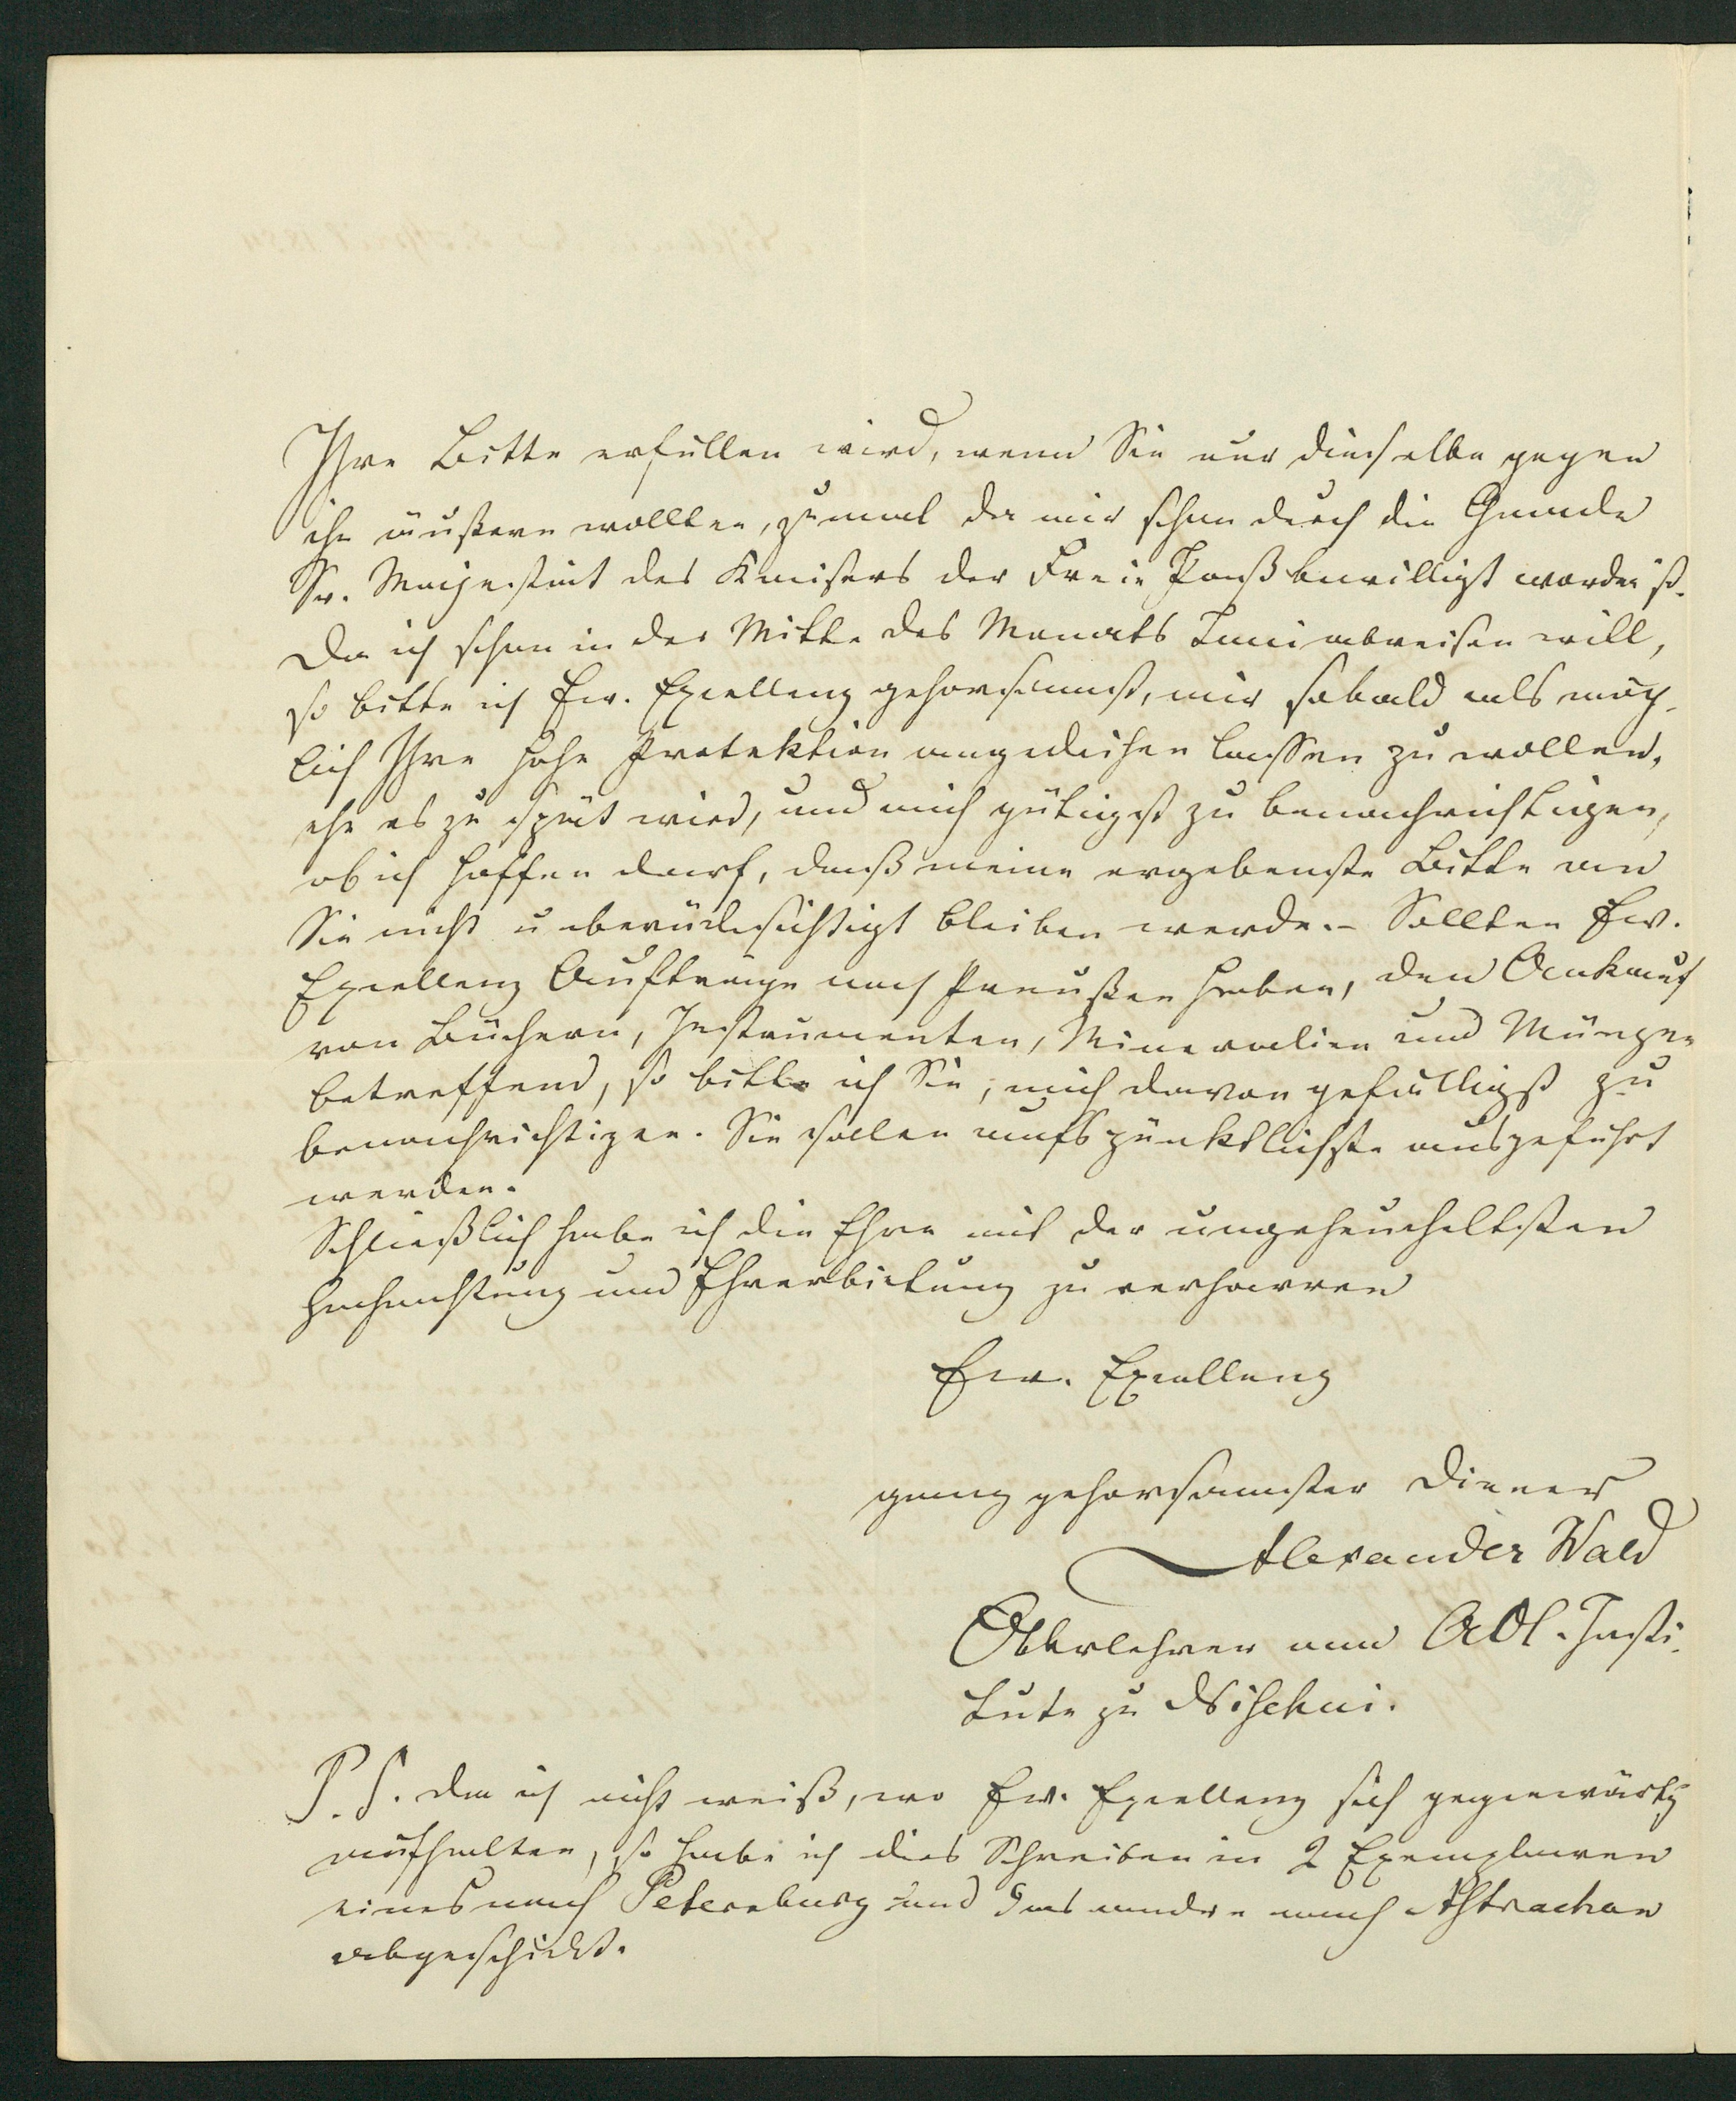 Ihre Bitte erfüllen wird, wenn Sie nur dieselbe gegen
ihn äußern wollten, zumal da mir schon durch die Gnade
Sr. Majestät des Kaisers der Freie Paß bewilligt worden ist.
Da ich schon in der Mitte des Monats Juni abreisen will,
so bitte ich Ew. Excellenz gehorsamst, mir sobald als mög-
lich Ihre hohe Protektion angedeihen lassen zu wollen,
ehe es zu spät wird, und mich gütigst zu benachrichtigen,
ob ich hoffen darf, daß meine ergebenste Bitte an
Sie nicht unberücksichtigt bleiben werde. – Sollten Ew.
Excellenz Aufträge nach Preußen haben, den Ankauf
von Büchern, Instrumenten, Mineralien und Münzen
betreffend, so bitte ich Sie, mich davon gefälligst zu
benachrichtigen. Sie sollen aufs pünktlichste ausgeführt
werden.
Schließlich habe ich die Ehre mit der ungeheucheltsten
Hochachtung und Ehrerbietung zu verharren
Ew. Excellenz
ganz gehorsamster Diener
Alexander Wald
Oberlehrer am Adl. Insti-
tute zu Nischni.
P. S. Da ich nicht weiß, wo Ew. Excellenz sich gegenwärtig
aufhalten, so habe ich dies Schreiben in 2 Exemplaren
eines nach Petersburg und das andre nach Astrachan
abgeschickt.